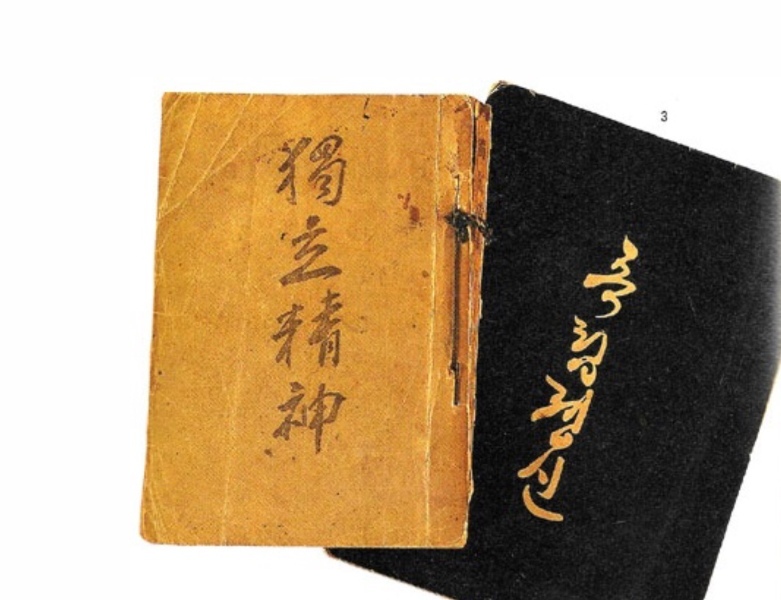 獨立精神
3
독립정신